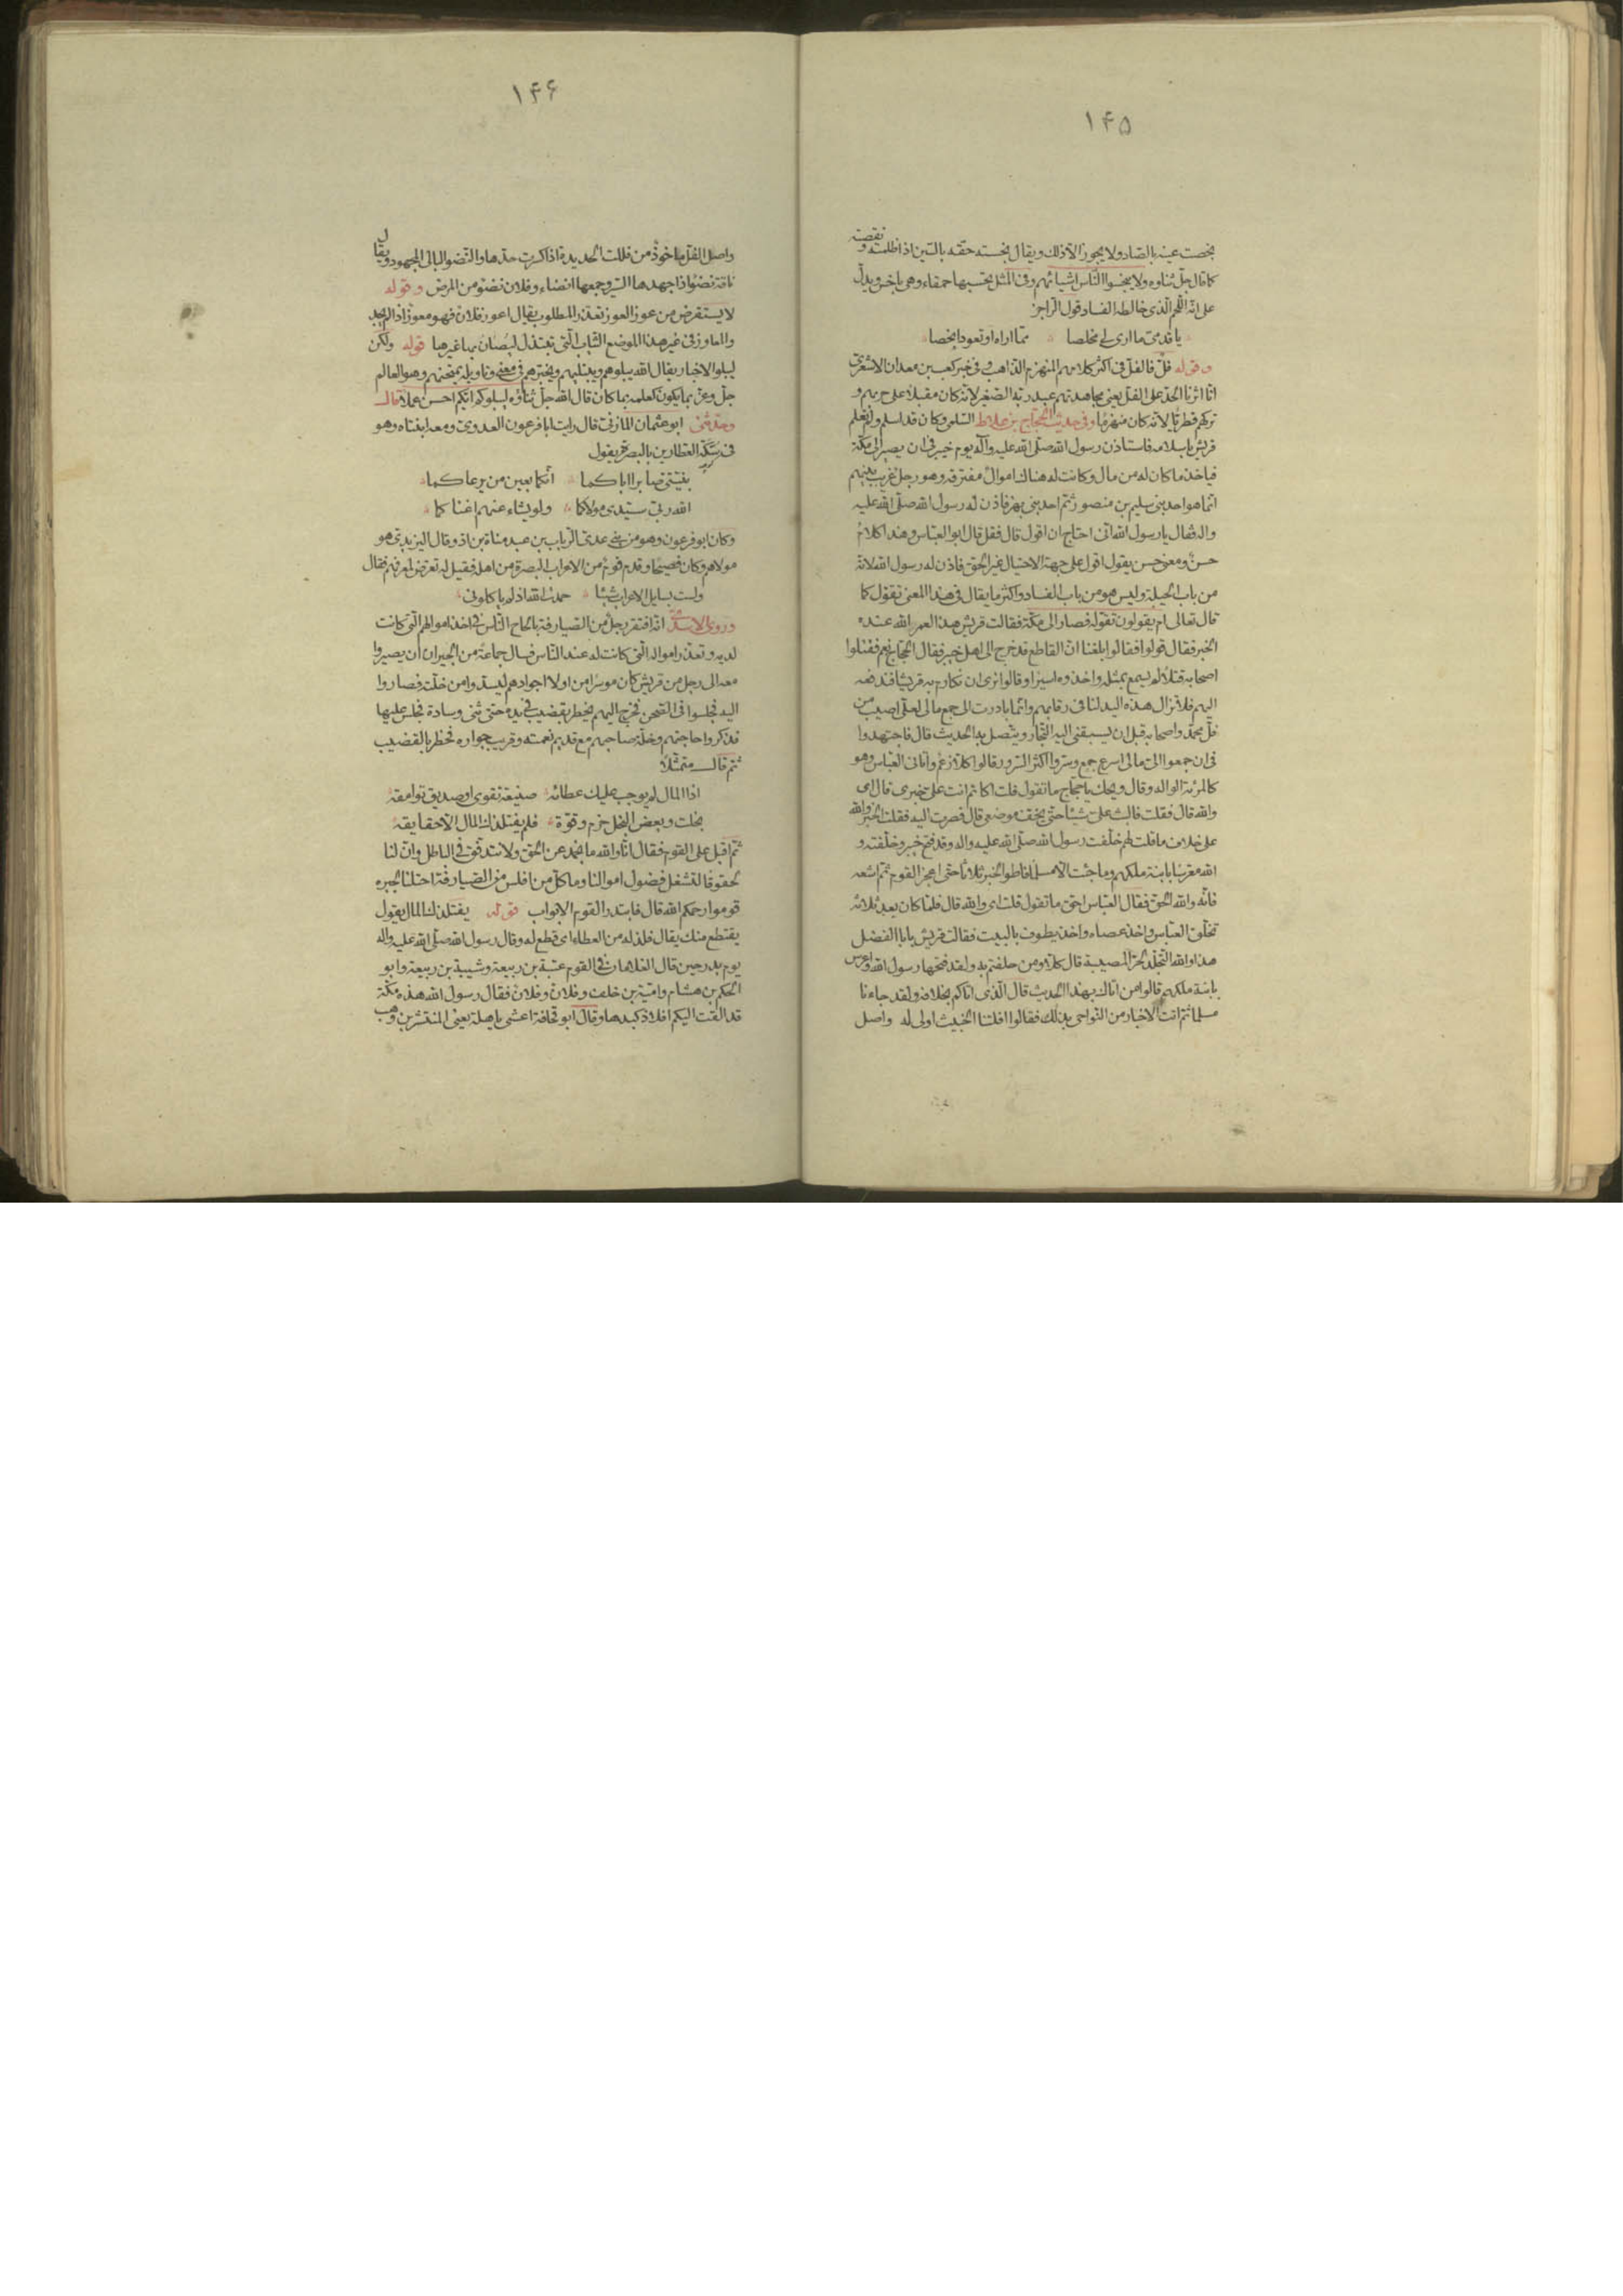 ۱۴۵
نقصته
بخصت عينه بالصاد ولا يجوز الا ذلك ويقال بخسته حقه بالسين اذا ظلمته و
كما قال جلّ ثناوه ولا تبخسوا النّاس اشيائهم وفى المثل تحسبها حمقاء وهى باخس ويدلّ
على انّه اللّحم الّذى خالطه الفساد قول الرّاجز
يا قدمىّ ما ارى لى مخلصا ممّا اراه او تعودا بخصا
وقوله فلّ فالفلّ فى اكثر كلامهم المنهزم الذاهب وفى خبر كعب بن معدان الاشعرى
انّا اثرنا الحدّ على الفلّ يعنى مجاهدتهم عبد ربّه الصّغير لانّه كان مقبلا على حربهم و
تركهم قطريّا لانّه كان منهزمًا وفى حديث الحجّاج بن علاط السّلمى وكان قد اسلم ولم تعلم
قريش باسلامه فاستاذن رسول الله صلّى الله عليه وآله يوم خيبر فى ان يصير الى مكّة
فياخذ ما كان له من مال وكانت له هناك اموال مفترقة وهو رجل غريب بينهم
انّما هو احد بنى سليم بن منصور ثمّ احد بنى بهز فاذن له رسول الله صلّى الله عليه
وآله فقال يا رسول الله انّى احتاج ان اقول قال فقل قال ابو العبّاس وهذا كلام
حسن ومعنى حسن يقول اقول على جهة الاحتيال غير الحق فاذن له رسول الله لانّه
من باب الحيلة وليس هو من باب الفساد واكثر ما يقال فى هذا المعنى تقول كما
قال تعالى ام يقولون تقوّله فصار الى مكّة فقالت قريش هذا لعمر الله عنده
الخبر فقال قولوا فقالوا بلغنا انّ القاطع قد خرج الى اهل خيبر فقال الحجّاج نعم فقتلوا
اصحابه قتلا لم يسمع بمثله واخذوه اسيرا وقالوا نرى ان نكارم به قريشا فندفعه
اليهم فلا تزال هذه اليد لنا فى رقابهم وانّما بادرت الى جمع مالى لعلّى اصيب من
فلّ محمّد واصحابه قبل ان يسبقنى اليه التجّار ويتّصل به الحديث قال فاجتهدوا
فى ان جمعوا الىّ مالى اسرع جمع وسرّوا اكثر السّرور وقالوا كلا زعم واتانى العبّاس وهو
كالمرأة الواله وقال ويحك يا حجّاج ما تقول قلت اكاتم انت علىّ خبرى قال اى
والله قال فقلت فالبث علىّ شيئا حتّى يخفّ موضعى قال فصرت اليه فقلت الخبر والله
على خلاف ما قلت لهم خلّفت رسول الله صلّى الله عليه وآله وقد فتح خيبر وخلّفته و
الله معرّسا بابنة ملكهم وما جئت الا مسلما فاطو الخبر ثلاثا حتّى اعجز القوم ثمّ اشعه
فانّه والله الحق فقال العبّاس احقّ ما تقول قلت اى والله قال فلمّا كان بعد ثلاثه
تخلّق العبّاس واخذ عصاه واخذ يطوف بالبيت فقالت قريش يا با الفضل
هذا والله التجلّد لحرّ المصيبة قال كلا ومن حلفتم به ولقد فتحها رسول الله واعرس
بابنة ملكهم قالوا من اتاك بهذا الحديث قال الّذى اتاكم بخلافه ولقد جاءنا
مسلما ثمّ اتت الاخبار من النّواحى بذلك فقالوا افلتنا الخبيث اولى له واصل
۱۴۶
واصل الفلّ ماخوذ من فللت الحديدة اذا كسرت حدّها والنّضو البالى المجهود ويقال
ناقة نضو اذا جهدها السّير وجمعها انضاء وفلان نضو من المرض وقوله
لا يستقرض من عوز العوز تعذّر المطلوب يقال اعوز فلان فهو معوز اذا لم يجد
والمعاوز فى غير هذا الموضع الثياب الّتى تبتذل ليصان بها غيرها قوله ولكن
ليبلو الاخبار يقال الله يبلوهم ويبتليهم ويختبرهم فى معنى وتاويله يمتحنهم وهو العالم
جلّ وعزّ بما يكون كعلمه بما كان قال الله جلّ ثناؤه ليبلوكم ايّكم احسن عملا قال
وحدّثنى ابو عثمان المازنى قال رايت ابا فرعون العدوى ومعه ابنتاه وهو
فى سكّة العطارين بالبصرة يقول
بنيّتىّ صابرا اباكما أنّكما بعين من يرعاكما
الله ربّى سيّدى مولاكما ولو يشاء عنهم اغناكما
وكان ابو فرعون وهو من بنى عدىّ الرّباب بن عبد مناة بن اد وقال اليزيدىّ هو
مولاهم وكان فصيحًا وقدم قوم من الاعراب البصرة من اهله فقيل له تعرّض لمعروفهم فقال
ولست بسايل الاعراب شيئا حمدت الله اذ لم ياكلونى
وروى الاسدىّ انّه افتقر رجل من الصّيارفة بالحاح النّاس فى اخذ اموالهم الّتى كانت
لديه وتعذّر امواله الّتى كانت له عند النّاس فسال جماعة من الجيران ان يصيروا
معه الى رجل من قريش كان موسرا من اولاد اجوادهم ليسدّ من خلّته فصاروا
اليه فجلسوا فى الصّحن فخرج اليهم يخطر بقضيب فى يده حتّى ثنى وسادة فجلس عليها
فذكروا حاجتهم وخلّة صاحبهم مع قديم نعمته وقريب جواره فخطر بالقضيب
ثمّ قال متمثّلا
اذا المال لم يوجب عليك عطاءه صنيعة تقوى او صديق توامقه
بخلت وبعض البخل حزم وقوّة فلم يفتلذك المال الا حقايقه
ثمّ اقبل على القوم فقال انّا والله ما نجمد عن الحق ولا نتدفّق فى الباطل وانّ لنا
لحقوقًا تشغل فضول اموالنا وما كلّ من افلس من الصّيارفة احتلنا لجبره
قوموا رحمكم الله قال فابتدر القوم الابواب قوله يفتلذك المال يقول
يقتطع منك يقال فلذ له من العطاء اى قطع له وقال رسول الله صلّى الله عليه وآله
يوم بدر حين قال الغلامان فى القوم عتبة بن ربيعة وشيبة بن ربيعة وابو
الحكم بن هشام واميّة بن خلف وفلان وفلان فقال رسول الله هذه مكّة
قد القت اليكم افلاذ كبدها وقال ابو قحافة اعشى باهلة يعنى المنتشر بن وهب